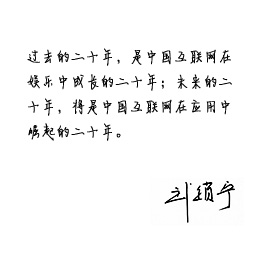 过去的二十年，是中国互联网在
娱乐中成长的二十年；未来的二
十年，将是中国互联网在应用中
崛起的二十年。